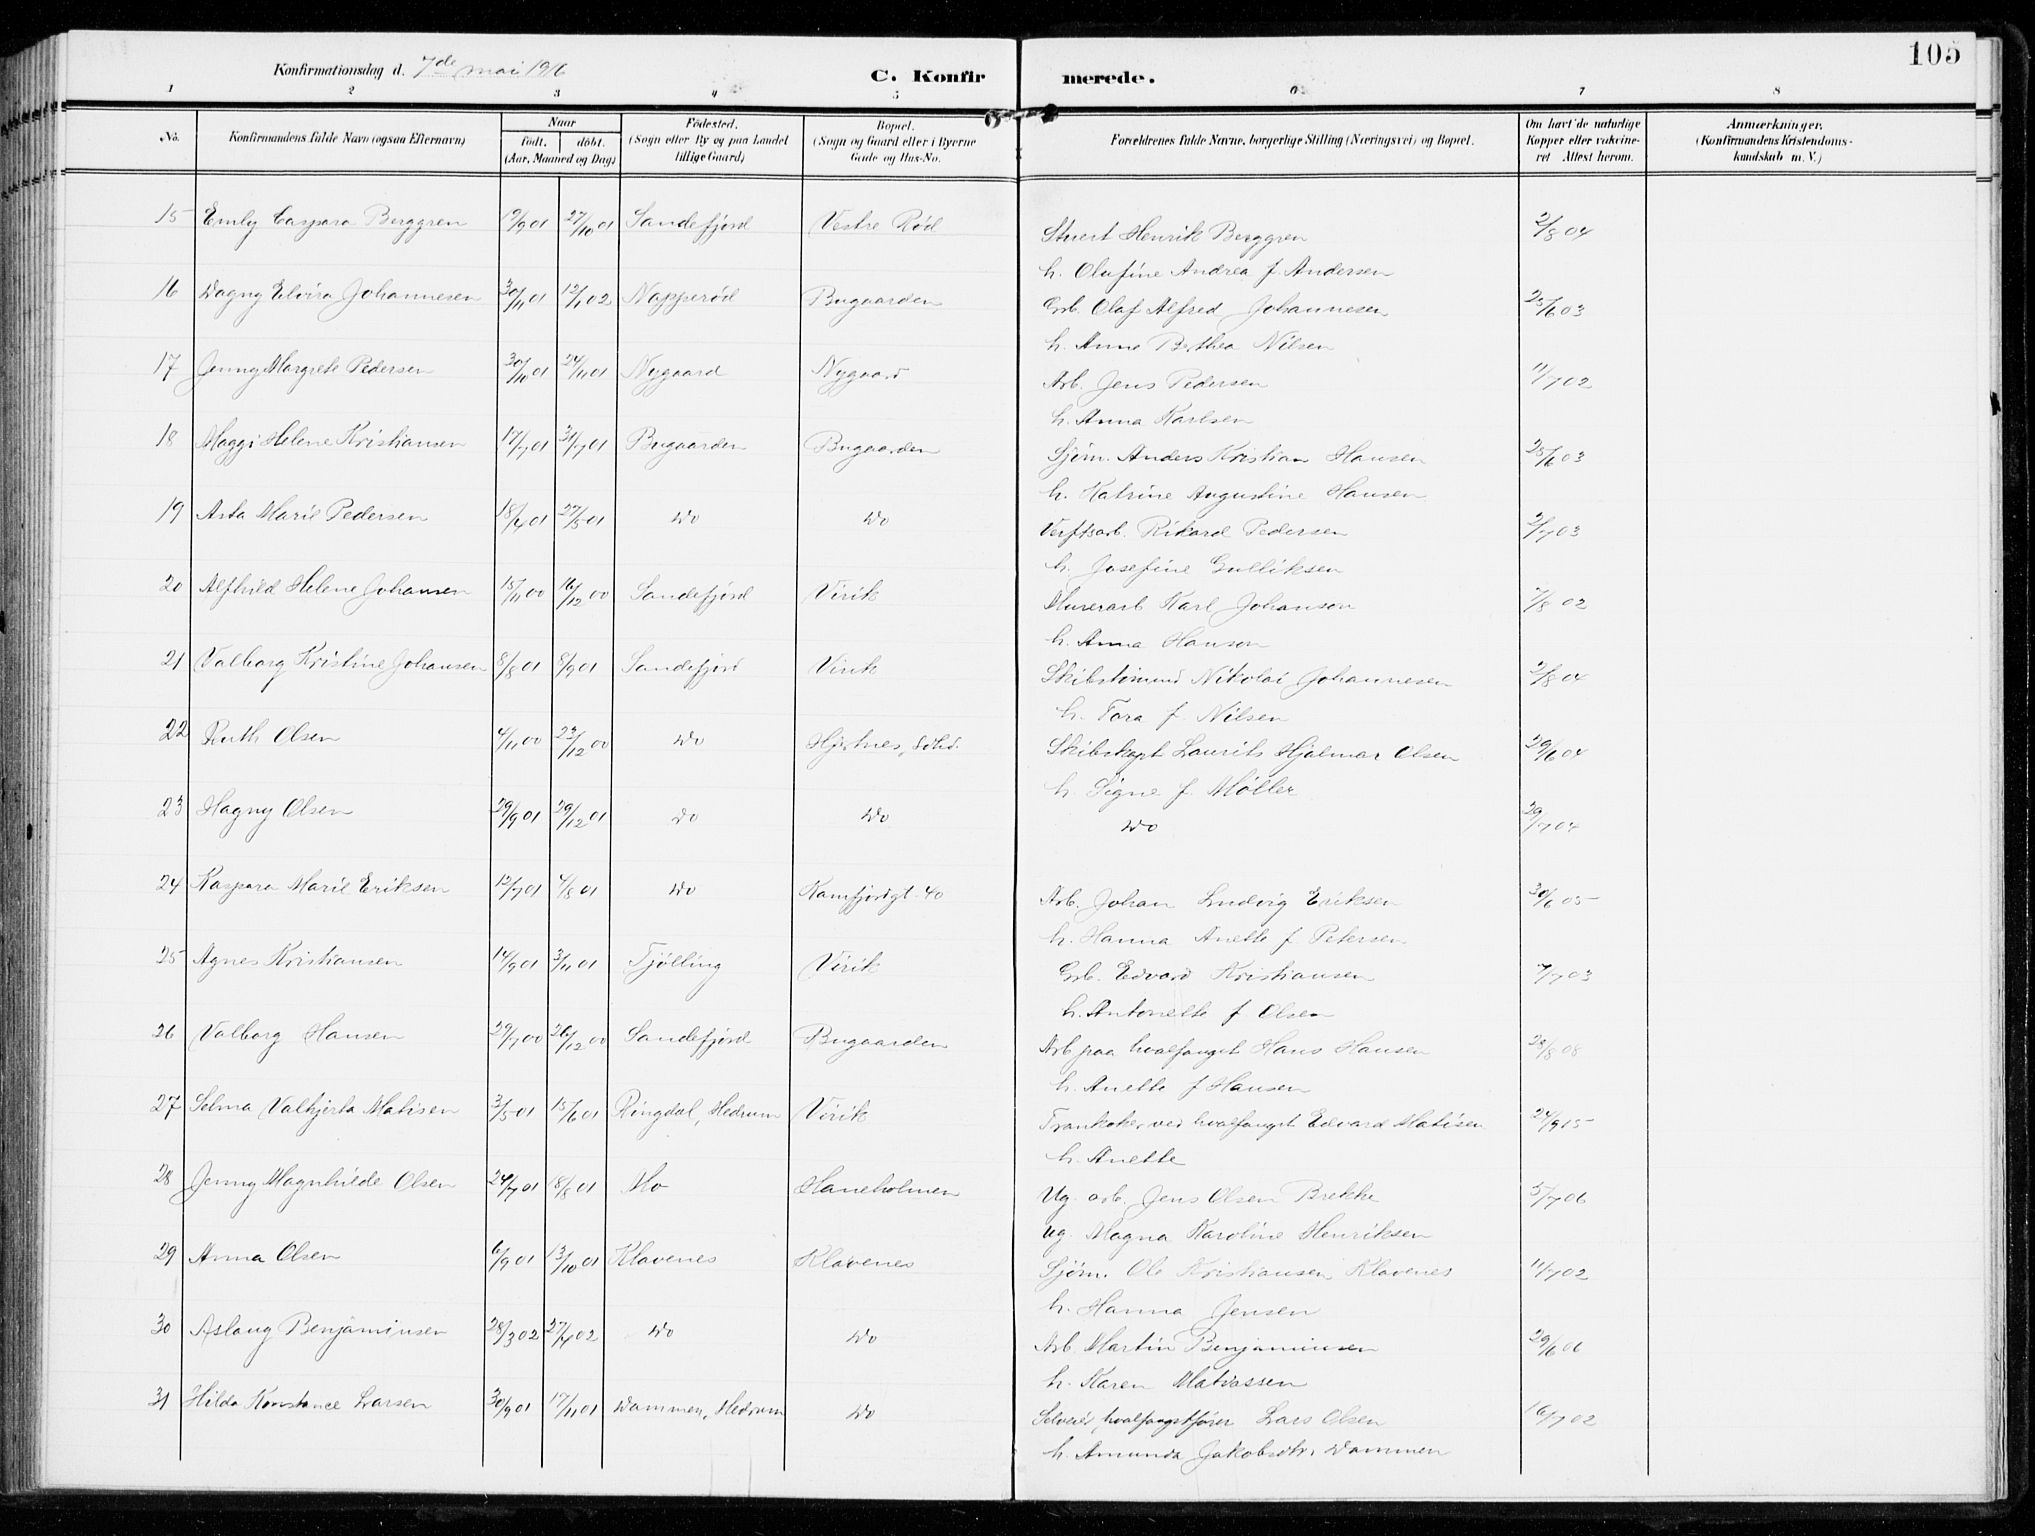 105
Konfirmationsdag d. 7de mai 1916
C. Konfirmerede.
1 2 3 4 5 6 7 8
No. Konfirmandens fulde Navn (ogsaa Efternavn) Naar født. døbt. (Aar, Maaned og Dag) Fødested. (Sogn eller By og paa Landet tillige Gaard) Bopæl. (Sogn og Gaard eller i Byerne Gade og Hus-No. Forældrenes fulde Navne, borgerlige Stilling (Næringsvei) og Bopæl. Om havt de naturlige Kopper eller vakcineret Attest herom. Anmærkninger. (Konfirmandens Kristendomskundskab m. V.)
15 Emly Caspara Berggren 12/9 01 27/10 01 Sandefjord Vestre Rød Stuert Henrik Berggren 2/8 04
h. Olufine Andrea f. Andersen
16 Dagny Elvira Johannesen 30/11 01 12/1 02 Napperød Bugaarden Grb. Olaf Alfred Johannesen 25/6 03
h. Anne Berthea Nilsen
17 Jenny Margrete Pedersen 30/10 01 24/11 01 Nygaard Nygaard Arb. Jens Pedersen 11/7 02
h. Anna Karlsen
18 Maggi Helene Kristiansen 17/7 01 31/7 01 Bugaarden Bugaarden Sjøm. Anders Kristian Hansen 25/6 03
h. Katrine Augustine Hansen
19 Asta Marie Pedersen 18/4 01 27/5 01 Do Do Verftsarb. Rikard Pedersen 2/7 03
h. Josefine Gulliksen
20 Alfhild Helene Johansen 15/11 00 16/12 00 Sandefjord Virik Murerarb Karl Johanson 7/8 02
h. Anna Hanson
21 Valborg Kristine Johansen 8/8 01 8/9 01 Sandefjord Virik Skibstømmd Nikolai Johannesen 2/8 04
h. Tora f. Nilsen
22 Ruth Olsen 4/11 00 23/12 00 Do Hjertnes, Skibskapt Laurits Hjalmar Olsen 29/6 04
h. Signe f. Møller
23 Hagny Olsen 29/9 01 29/12 01 Do Do Do 29/7 04
24 Kaspara Marie Eriksen 12/7 01 4/8 01 Do Kamfjordgt. 40 Arb. Johan Ludvig Eriksen 30/6 05
h. Hanna Anette f Petersen
25 Agnes Kristiansen 14/9 01 3/11 01 Tjølling Virik Grb. Edvard Kristiansen 7/7 03
h. Antonette f Olsen
26 Valborg Hansen 29/7 00 26/12 00 Sandefjord Bugaarden Arb paa hvalfanget Hans Hansen 28/8 08
h. Anette f Hansen
27 Selma Valkjerta Matisen 3/5 01 15/6 01 Ringdal, Hedrum Virik Trankoker ved hvalfanget Edvard Matisen 24/9 15
h. Anette
28 Jenny Magnhilde Olsen 24/7 01 18/8 01 Mo Haneholmen Ug. arb. Jens Olsen Brekke 5/7 06
Ug Magna Karoline Henriksen
29 Anna Olsen 6/9 01 13/10 01 Klavenes Klavenes Sjøm. Ole Kristiansen Klavenes 11/7 02
h. Hanna Jensen
30 Aslaug Benjaminsen 28/3 02 27/4 02 Do Do Arb. Martin Benjaminsen 29/6 06
h. Karen Matiassen
31 Hilda Konstance Larsen 30/9 01 17/11 01 Dammen, Hedrum Do Selveier, hvalfangstfører Lars Olsen 16/7 02
h. Amunda Jakobsdtr. Dammen